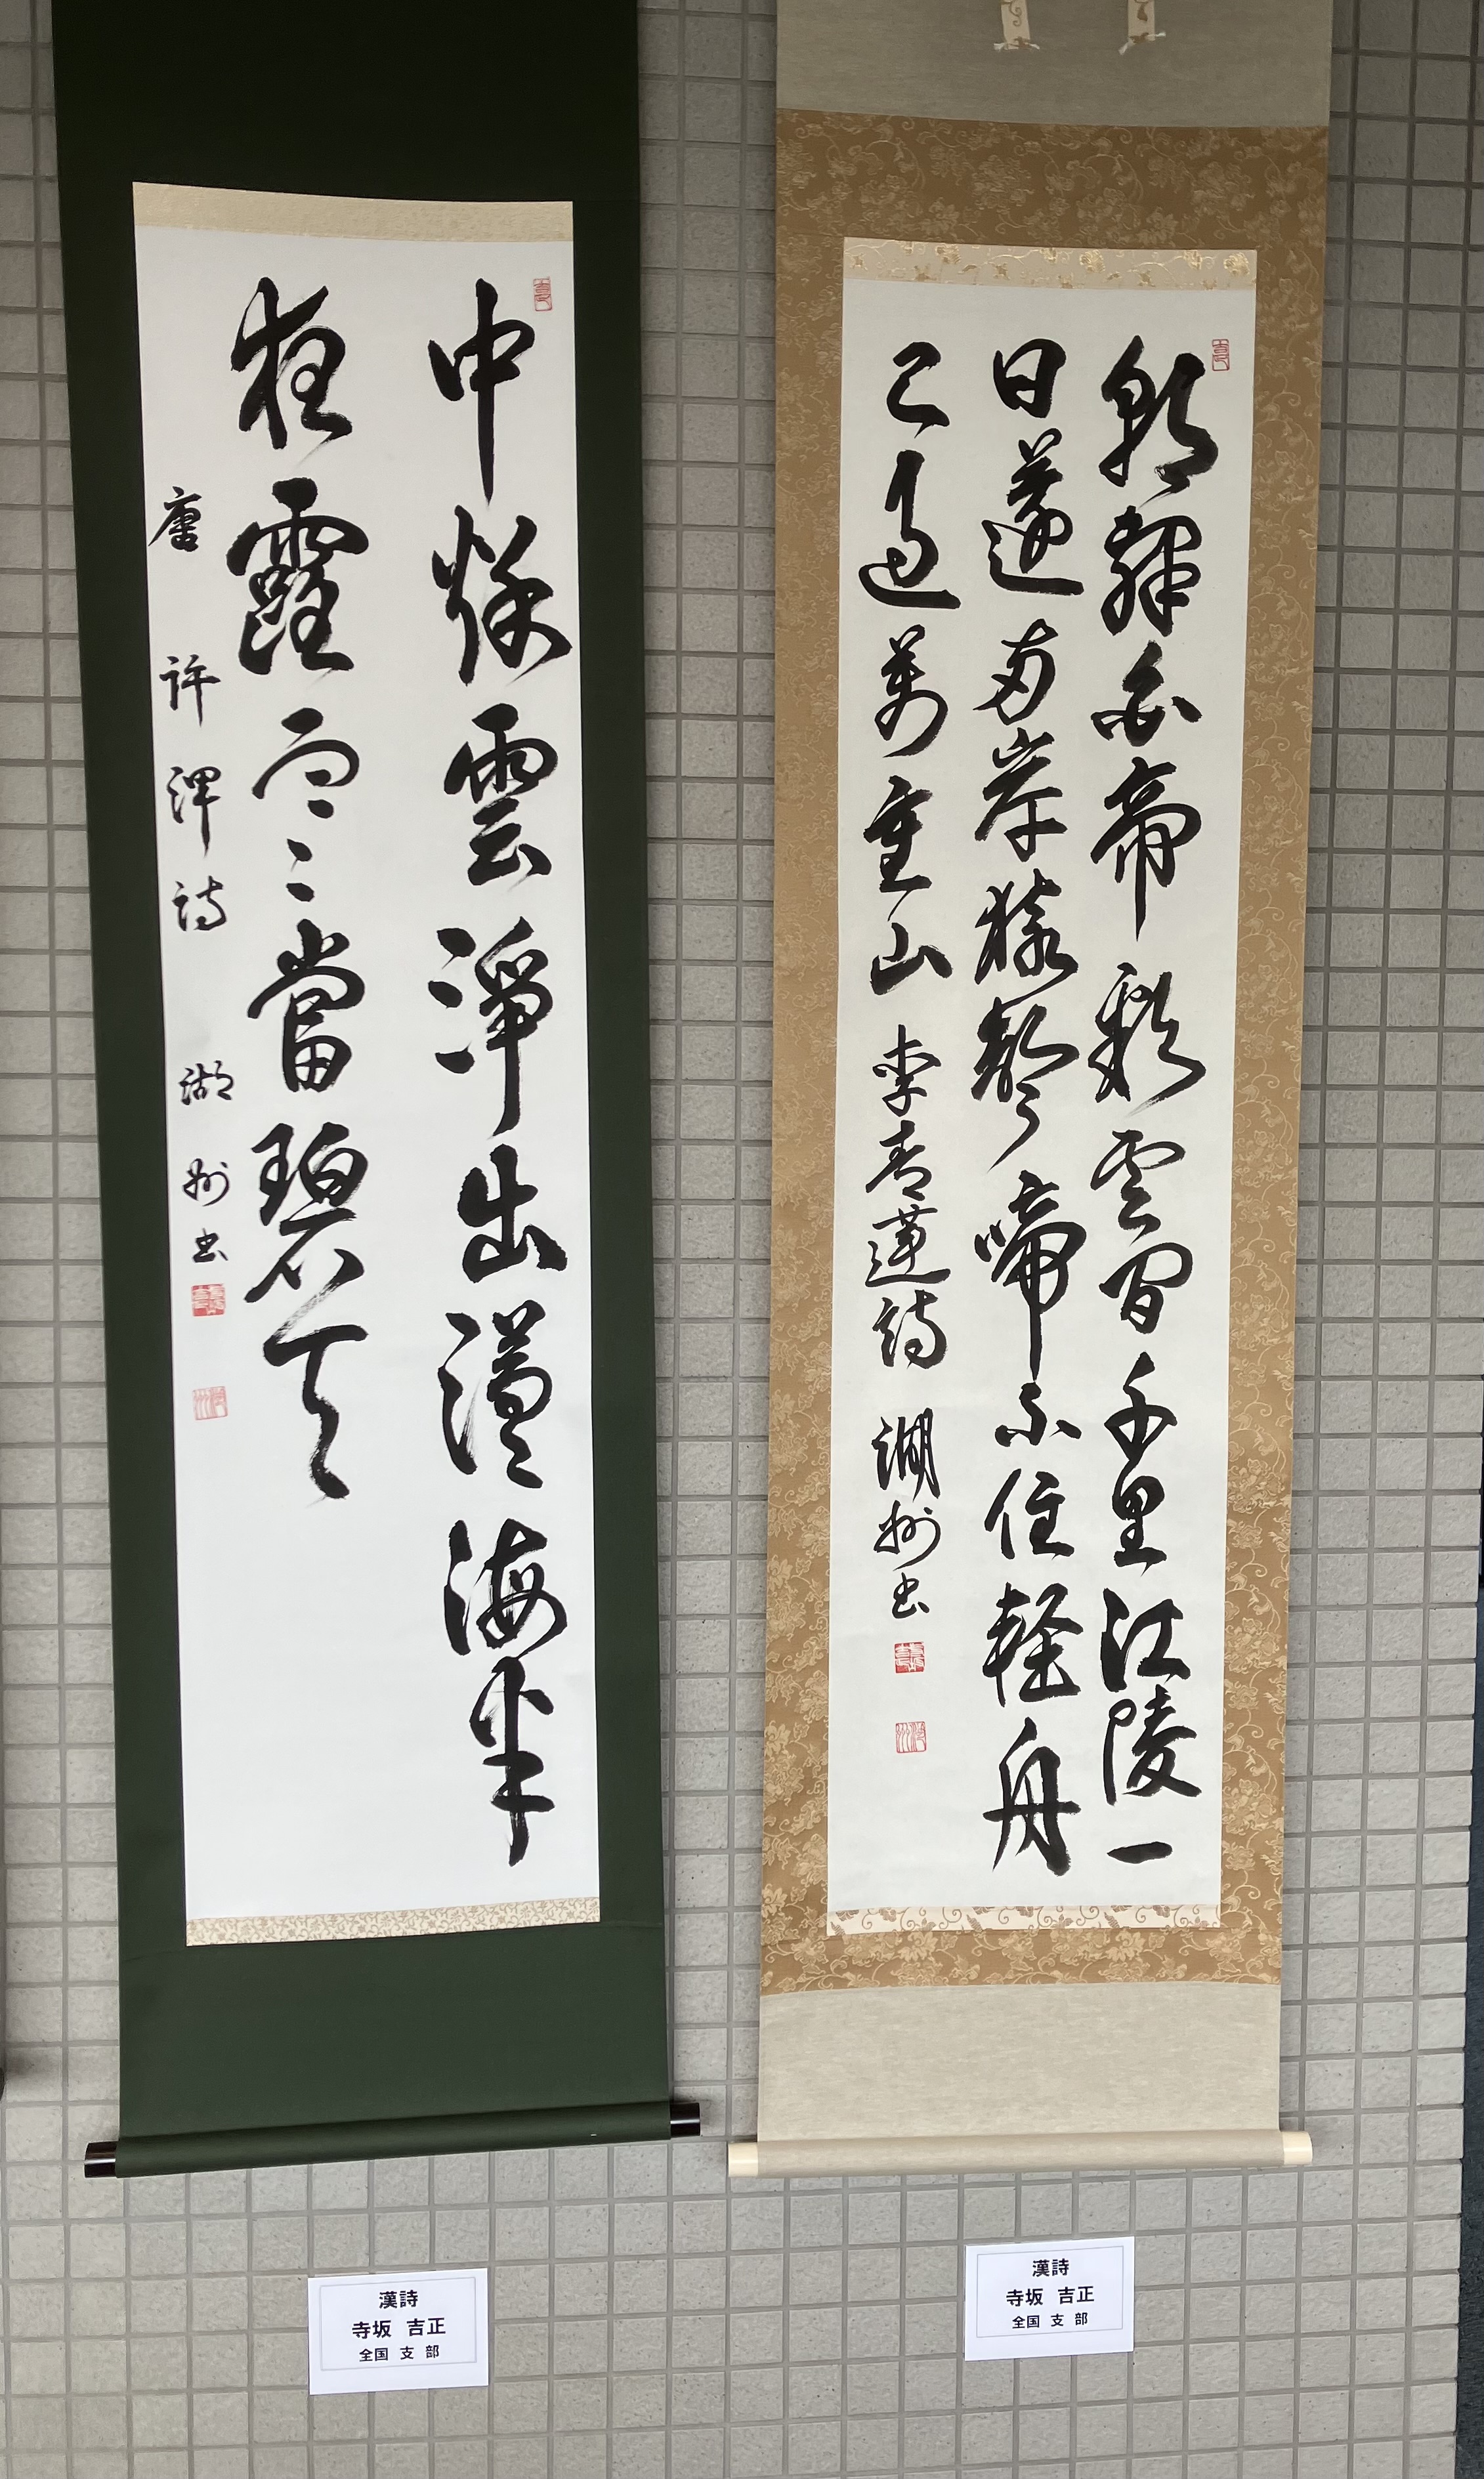 朝辭白帝彩雲間千里江陵一
日還兩岸猿聲啼不住輕舟
已過萬重山 李青蓮詩 湖州書
中秋雲淨出滄海半
夜露寒當碧天
唐 許渾詩 湖州書
漢詩
寺坂 吉正
全国 支 部
漢詩
寺坂 吉正
全国 支 部